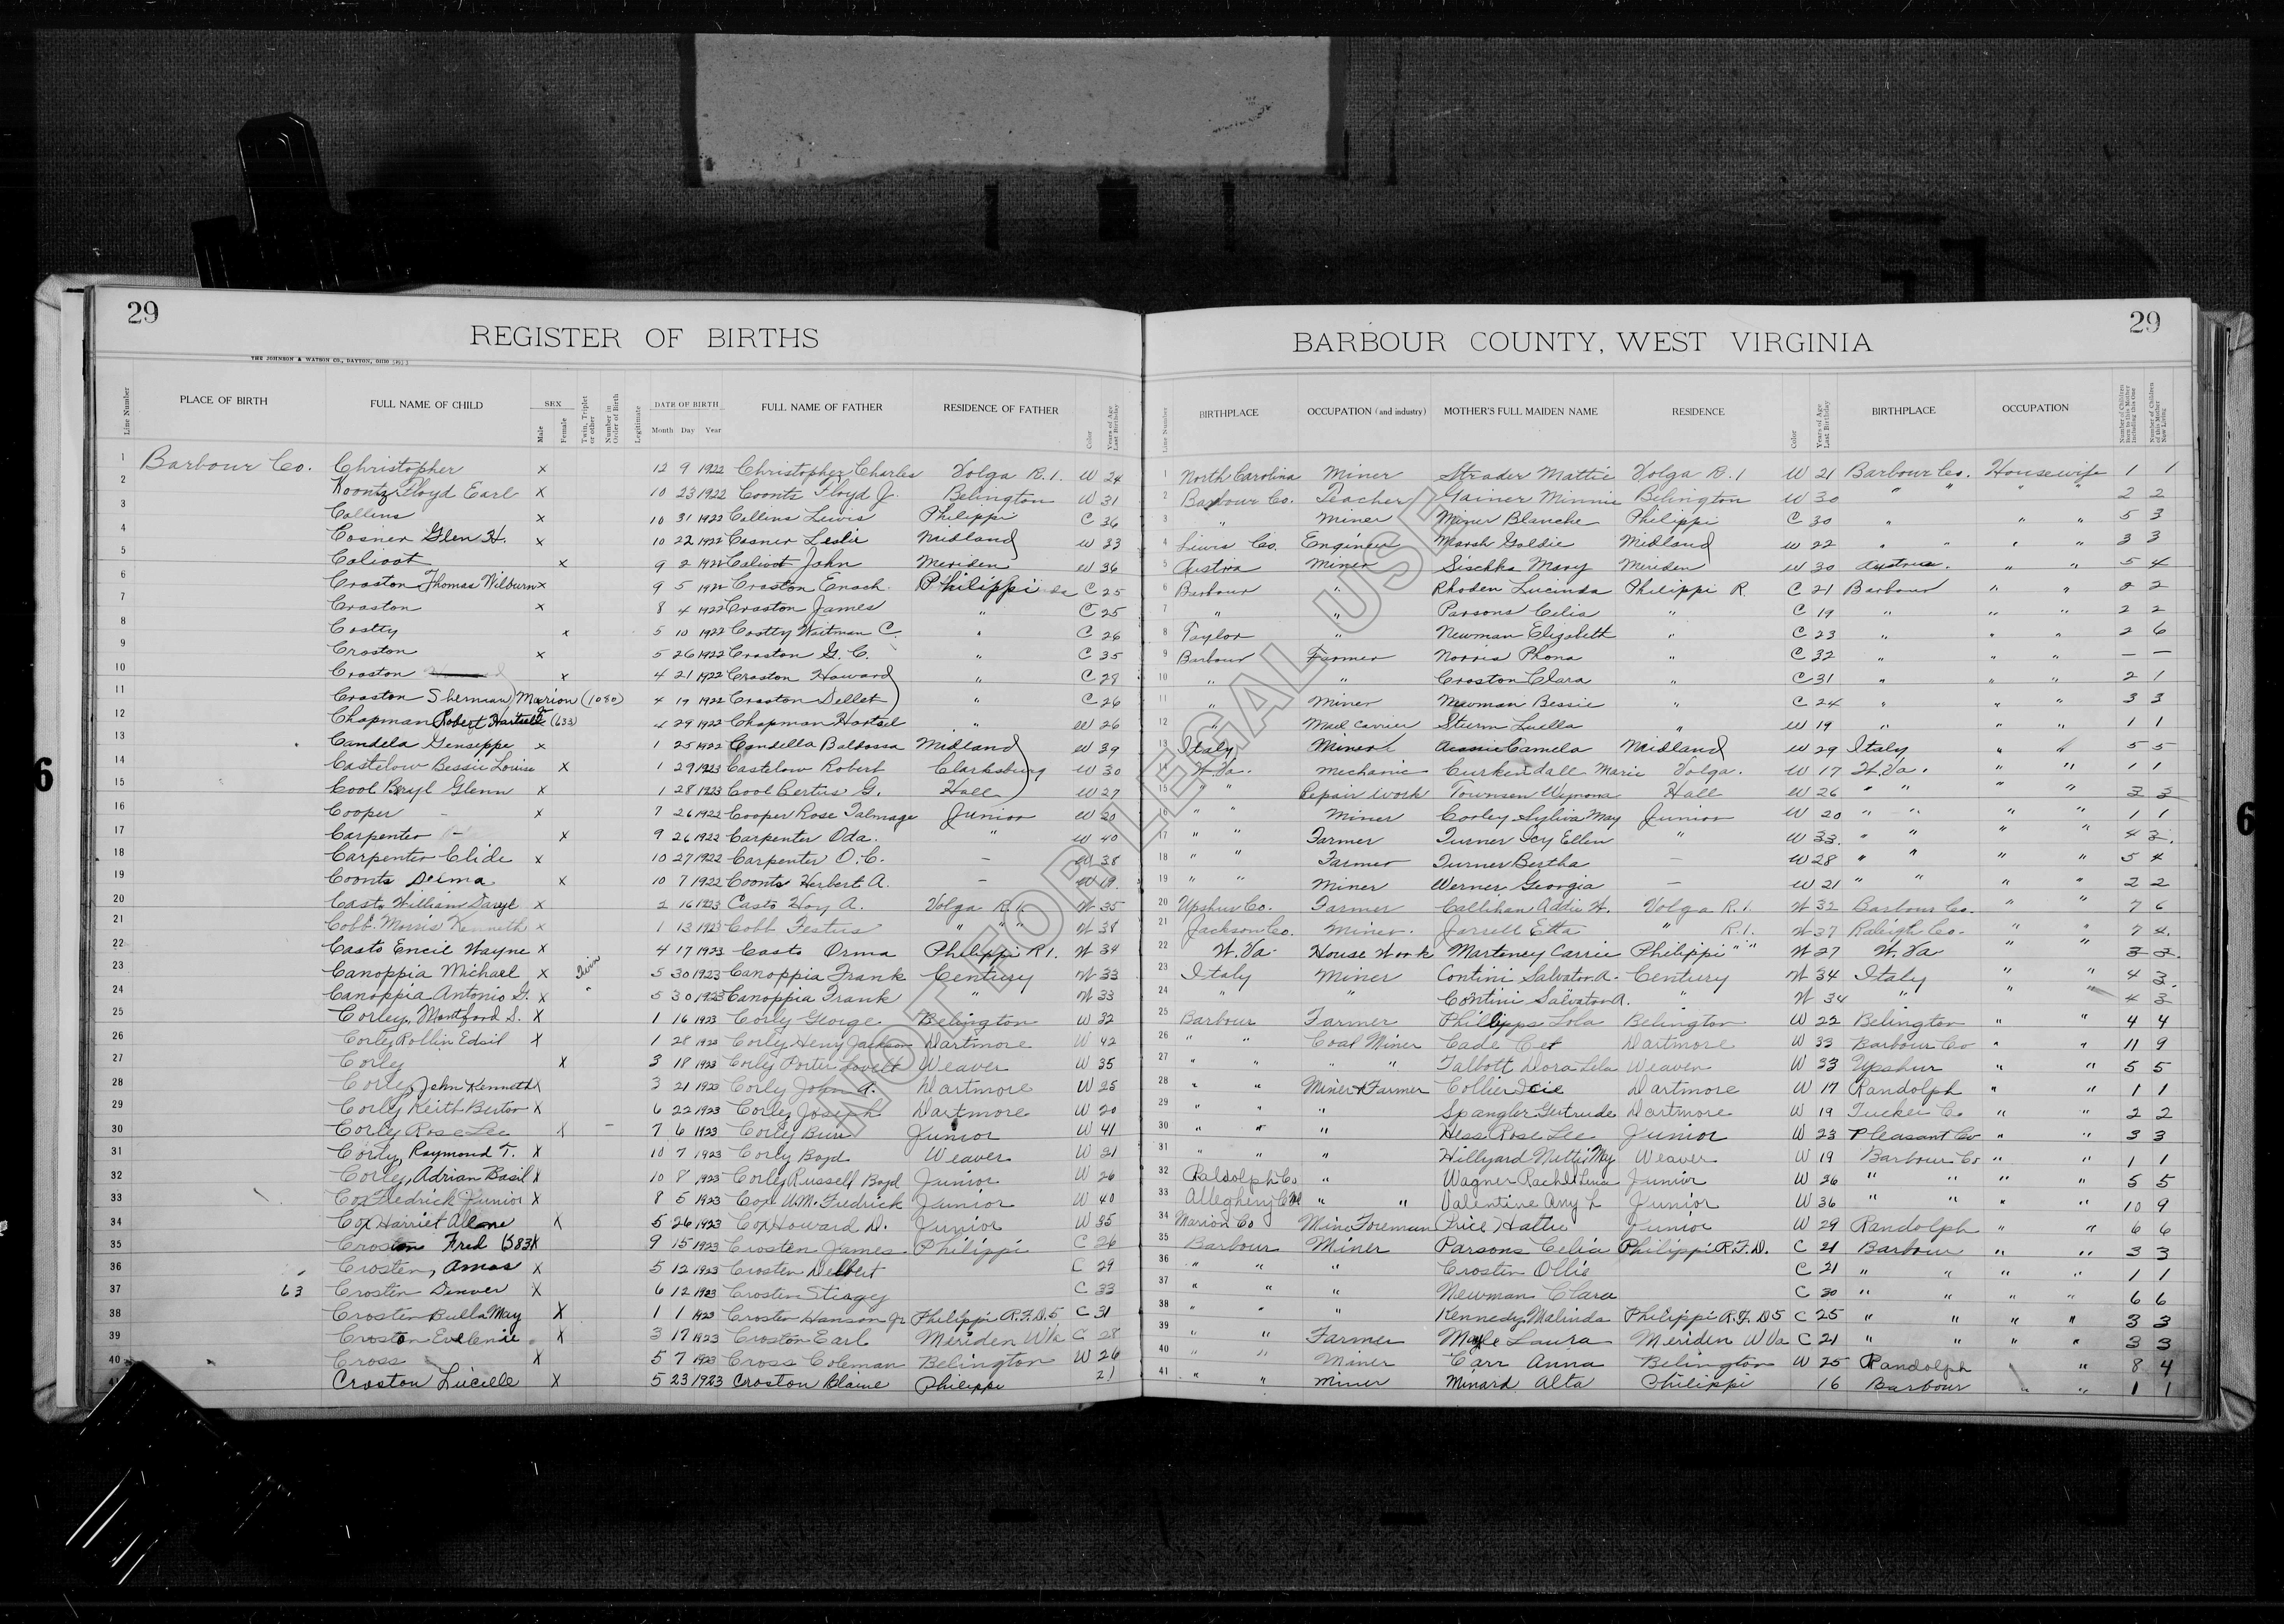 29
REGISTER OF BIRTHS
BARBOUR COUNTY, WEST VIRGINIA
29
THE JOHNSON & WATSON CO., DAYTON, OHIO
Line Number PLACE OF BIRTH FULL NAME OF CHILD SEX Male Female Twin, Triplet or other Number in Order of Birth Legitimate DATE OF BIRTH Month Day Year FULL NAME OF FATHER RESIDENCE OF FATHER Color Years of Age Last Birthday Line Number BIRTHPLACE OCCUPATION (and industry) MOTHER'S FULL MAIDEN NAME RESIDENCE Color Years of Age Last Birthday BIRTHPLACE OCCUPATION Number of Children Born to this Mother Including this One Number of Children of this Mother Now Living
1 Barbour Co. Christopher x 12 9 1922 Christopher Charles Volga R.1. W 24 1 North Carolina Miner Strader Mattie Volga R.1 W 21 Barbour Co. Housewife 1 1
2 Koontz Floyd Earl x 10 23 1922 Coontz Floyd J. Belington W 31 2 Barbour Co. Teacher Gainer Minnie Belington W 30 " " " " 2 2
3 Collins x 10 31 1922 Collins Lewis Philippi C 36 3 " Miner Miner Blanche Philippi C 30 " " " 5 3
4 Cosner Glen H. x 10 22 1922 Cosner Leslie Midland W 33 4 Lewis Co. Engineer Marsh Goldie Midland W 22 " " " " 3 3
5 Calivot x 9 2 1922 Calivot John Meriden W 36 5 Austria Miner Sischka Mary Meriden W 30 Austria. " " 5 4
6 Croston Thomas Wilburn x 9 5 1922 Croston Enoch Philippi C 25 6 Barbour " Rhoden Lucinda Philippi R. C 21 Barbour " " 2
7 Croston x 8 4 1922 Croston James " C 25 7 " " Parsons Celia " C 19 " " " 2 2
8 Costly x 5 10 1922 Costly Waitman C. " C 26 8 Taylor " Newman Elizabeth " C 23 " " " 2 6
9 Croston x 5 26 1922 Croston G. C. " C 35 9 Barbour Farmer Norris Phona " C 32 " " " — —
10 Croston x 4 21 1922 Croston Howard " C 29 10 " " Croston Clara " C 31 " " " 2 1
11 Croston Sherman Marion (1080) 4 19 1922 Croston Dellet " C 26 11 " Miner Newman Bessie " C 24 " " " 3 3
12 Chapman Robert Hartsell (633) 4 29 1922 Chapman Hartsel " W 26 12 " Mail Carrier Sturm Luella " W 19 " " " 1 1
13 Candela Genseppe x 1 25 1922 Candella Baldossa Midland W 39 13 Italy Miner Camela Midland W 29 Italy " " 5 5
14 Castelow Bessie Louise x 1 29 1923 Castelow Robert Clarksburg W 30 14 W. Va. Mechanic Curkendall Marie Volga. W 17 W. Va. " " 1 1
15 Cool Beryl Glenn x 1 28 1923 Cool Bertus G. Hall W 27 15 " " Repair work Townsen Wynona Hall W 26 " " " " 3 3
16 Cooper - x 7 26 1922 Cooper Rose Talmage Junior W 20 16 " " Miner Corley Sylvia May Junior W 20 " " " " 1 1
17 Carpenter x 9 26 1922 Carpenter Oda. " W 40 17 " " Farmer Turner Icy Ellen " W 33. " " " " 4 3
18 Carpenter Clide x 10 27 1922 Carpenter O. C. — W 38 18 " " Farmer Turner Bertha — W 28 " " " " 5 4
19 Coonts Delma x 10 7 1922 Coonts Herbert A. — W 19. 19 " " Miner Werner Georgia — W 21 " " " " 2 2
20 Casto William Daryl x 2 16 1923 Casto Hoy A. Volga R.1. W 35 20 Upshur Co. Farmer Callihan Addie H. Volga R.1. W 32 Barbour Co. " " 7 6
21 Cobb Morris Kenneth x 1 13 1923 Cobb Festus " " " W 38 21 Jackson Co. Miner. Jarrell Etta " R.1. W 37 Raleigh Co. " " 7 4.
22 Casto Encil Wayne x 4 17 1923 Casto Orma Philippi R1. W 34 22 W. Va House Work Marteney Carrie Philippi " " W 27 W. Va " " 3 3.
23 Canoppia Michael x Twin 5 30 1923 Canoppia Frank Century W 33 23 Italy Miner Contini Salvator A. Century W 34 Italy " " 4 3.
24 Canoppia Antonio G. x " 5 30 1923 Canoppia Frank " W 33 24 " " Contini Salvator A. " W 34 " " " 4 3
25 Corley, Montford S. X 1 16 1923 Corly George Belington W 32 25 Barbour Farmer Phillips Lola Belington W 22 Belington " " 4 4
26 Corley Rollin Edsil X 1 28 1923 Corly Henry Jackson Dartmore W 42 26 " " Coal Miner Cade Cet Dartmore W 33 Barbour Co " " 11 9
27 Corley X 3 18 1923 Corly Porter Lovell Weaver W 35 27 " " " " Talbott Dora Lela Weaver W 33 Upshur " " 5 5
28 Corley, John Kenneth X 3 21 1923 Corly John A. Dartmore W 25 28 " " Miner & Farmer Collier Icie Dartmore W 17 Randolph " " 1 1
29 Corly Keith Berton X 6 22 1923 Corley Joseph Dartmore W 20 29 " " " Spangler Gertrude Dartmore W 19 Tucker Co " " 2 2
30 Corley Rose Lee X - 7 6 1923 Corley Burr Junior W 41 30 " " " Hess Rose Lee Junior W 23 Pleasant Co " " 3 3
31 Corly, Raymond T. X 10 7 1923 Corly Boyd Weaver W 21 31 " " " Hillyard Nettie May Weaver W 19 Barbour Co " " 1 1
32 Corley, Adrian Basil X 10 8 1923 Corley Russell Boyd Junior W 26 32 Raldolph Co " Wagner Rachel Junior W 26 " " " " 5 5
33 Cox Fredrick Junior X 8 5 1923 Cox U.M. Fredrick Junior W 40 33 Allegheny Co Md " " Valentine Any L Junior W 36 " " " " 10 9
34 Cox Harriet Allene X 5 26 1923 Cox Howard D. Junior W 35 34 Marion Co Mine Foreman Price Hattie Junior W 29 Randolph " " 6 6
35 Croston Fred (583) X 9 15 1923 Crosten James Philippi C 26 35 Barbour Miner Parsons Celia Philippi R.F.D. C 21 Barbour " " 3 3
36 Crosten, Amos X 5 12 1923 Crosten Delbert C 29 36 " " " Crosten Ollie C 21 " " " " 1 1
37 63 Crosten Denver X 6 12 1923 Crosten Stirgey C 33 37 " " " Newman Clara C 30 " " " " 6 6
38 Crosten Bulla May X 1 1 1923 Crosten Hanson Jr Philippi R.F.D.5 C 31 38 " " " Kennedy, Malinda Philippi R.F.D5 C 25 " " " " 3 3
39 Croston Evelenie X 3 17 1923 Croston Earl Meriden W Va C 28 39 " " Farmer Mayle Laura Meriden W Va C 21 " " " " 3 3
40 Cross X 5 7 1923 Cross Coleman Belington W 26 40 " " Miner Carr Anna Belington W 25 Randolph " 8 4
41 Croston Lucille X 5 23 1923 Croston Blaine Philippi 21 41 " " Miner Minard Alta Philippi 16 Barbour " " 1 1
NOT FOR LEGAL USE
6
6